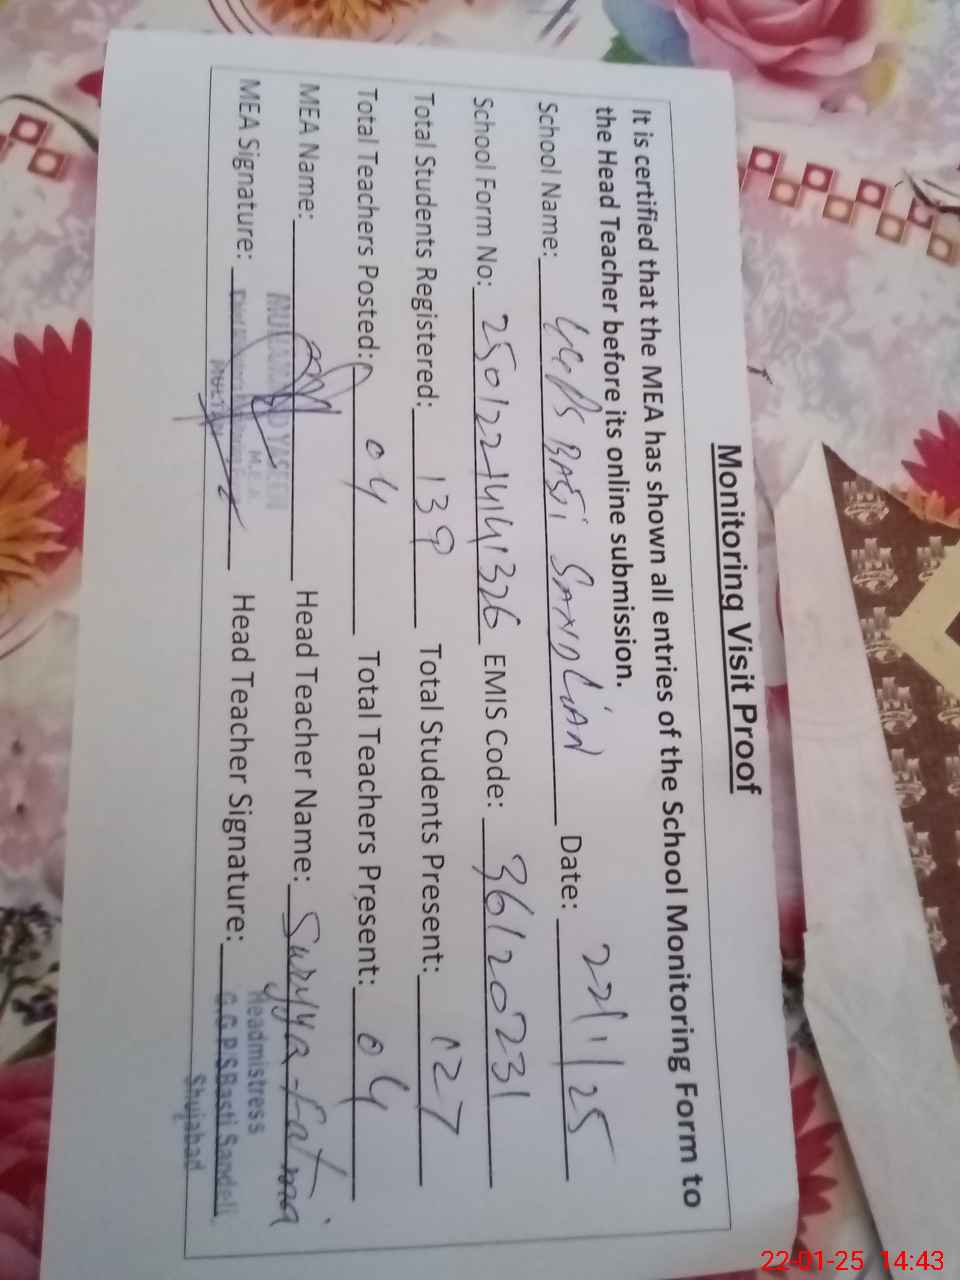 Monitoring Visit Proof
It is certified that the MEA has shown all entries of the School Monitoring Form to
the Head Teacher before its online submission.
School Name: GGPS BASTI SANDLIAN Date: 22/1/25
School Form No: 250122141441326 EMIS Code: 36120231
Total Students Registered: 139 Total Students Present: 127
Total Teachers Posted: 04 Total Teachers Present: 04
MEA Name: Head Teacher Name: Suryya Fatima
MUHAMMAD YASEEN
M.E.A
MEA Signature: Head Teacher Signature:
Headmistress
G.G.P.S Basti Sandeli
Shujabad
22-01-25 14:43